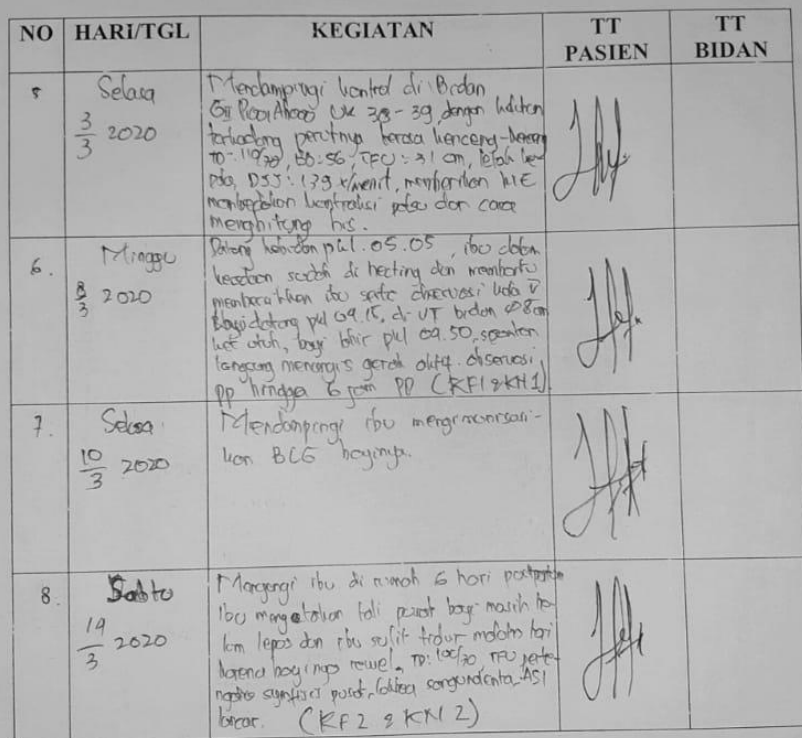 NO HARI/TGL KEGIATAN TT PASIEN TT BIDAN
5 Selasa 3/3 2020
Mendampingi kontrol di Bidan
UK 38-39, dengan keluhan
terkadang perutnya terasa kenceng-
TD: 110/70, BB: 56, TFU: 31 cm, letak
DJJ: 139 x/menit, memberikan KIE
kontraksi palsu dan cara
menghitung his.
6. Minggu 8/3 2020
Datang pkl. 05.05, ibu dalam
keadaan sudah di hecting dan membantu
ibu serta observasi
datang pkl 04.15, di VT bidan Ø 8cm
ket utuh, bayi lahir pkl 04.50, spontan
langsung menangis gerak aktif. observasi
PP hingga 6 jam PP (KF1 & KN1)
7. Selasa 10/3 2020
Mendampingi ibu mengimunisasi-
kan BCG bayinya.
8. Sabtu 14/3 2020
ibu di rumah 6 hari postpartum
Ibu mengatakan tali pusat bayi masih be
lum lepas dan ibu sulit tidur malam hari
karena bayinya rewel, TD: 100/70, TFU perte
ngahan symfisis pusat, lokhea sanguinolenta, ASI
lancar. (KF2 & KN2)